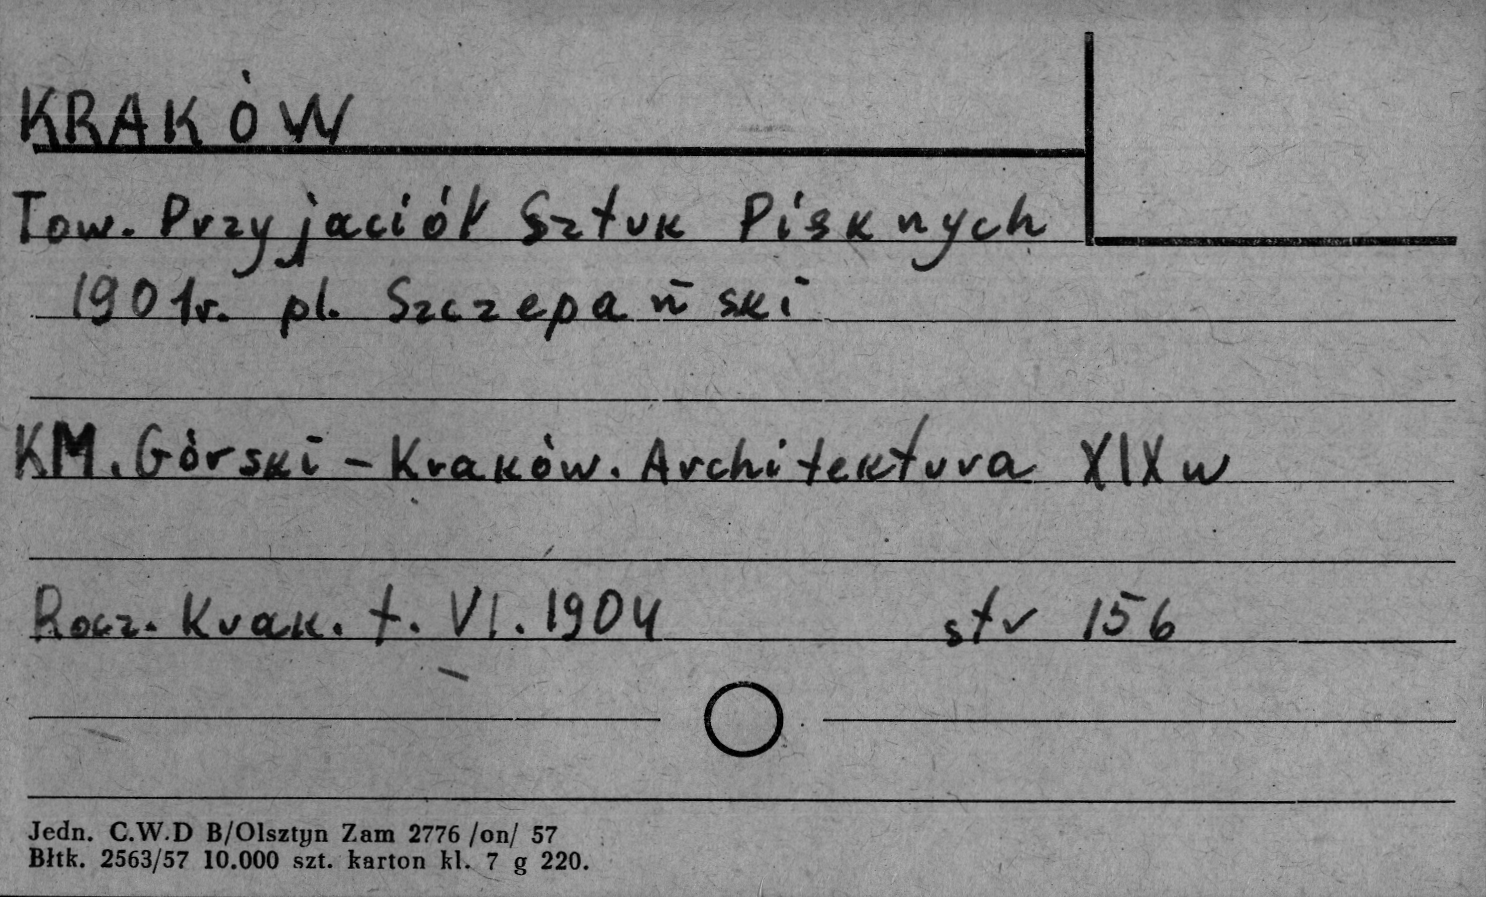 KRAKÓW
Tow. Przyjaciół Sztuk Pisknych
1901r. pl. Szczepański
KM. Górski - Kraków. Architektura XIX w
Rocz. Krak. t. VI. 1904 str 156
Jedn. C.W.D B/Olsztyn Zam 2776 /on/ 57
Błtk. 2563/57 10.000 szt. karton kl. 7 g 220.